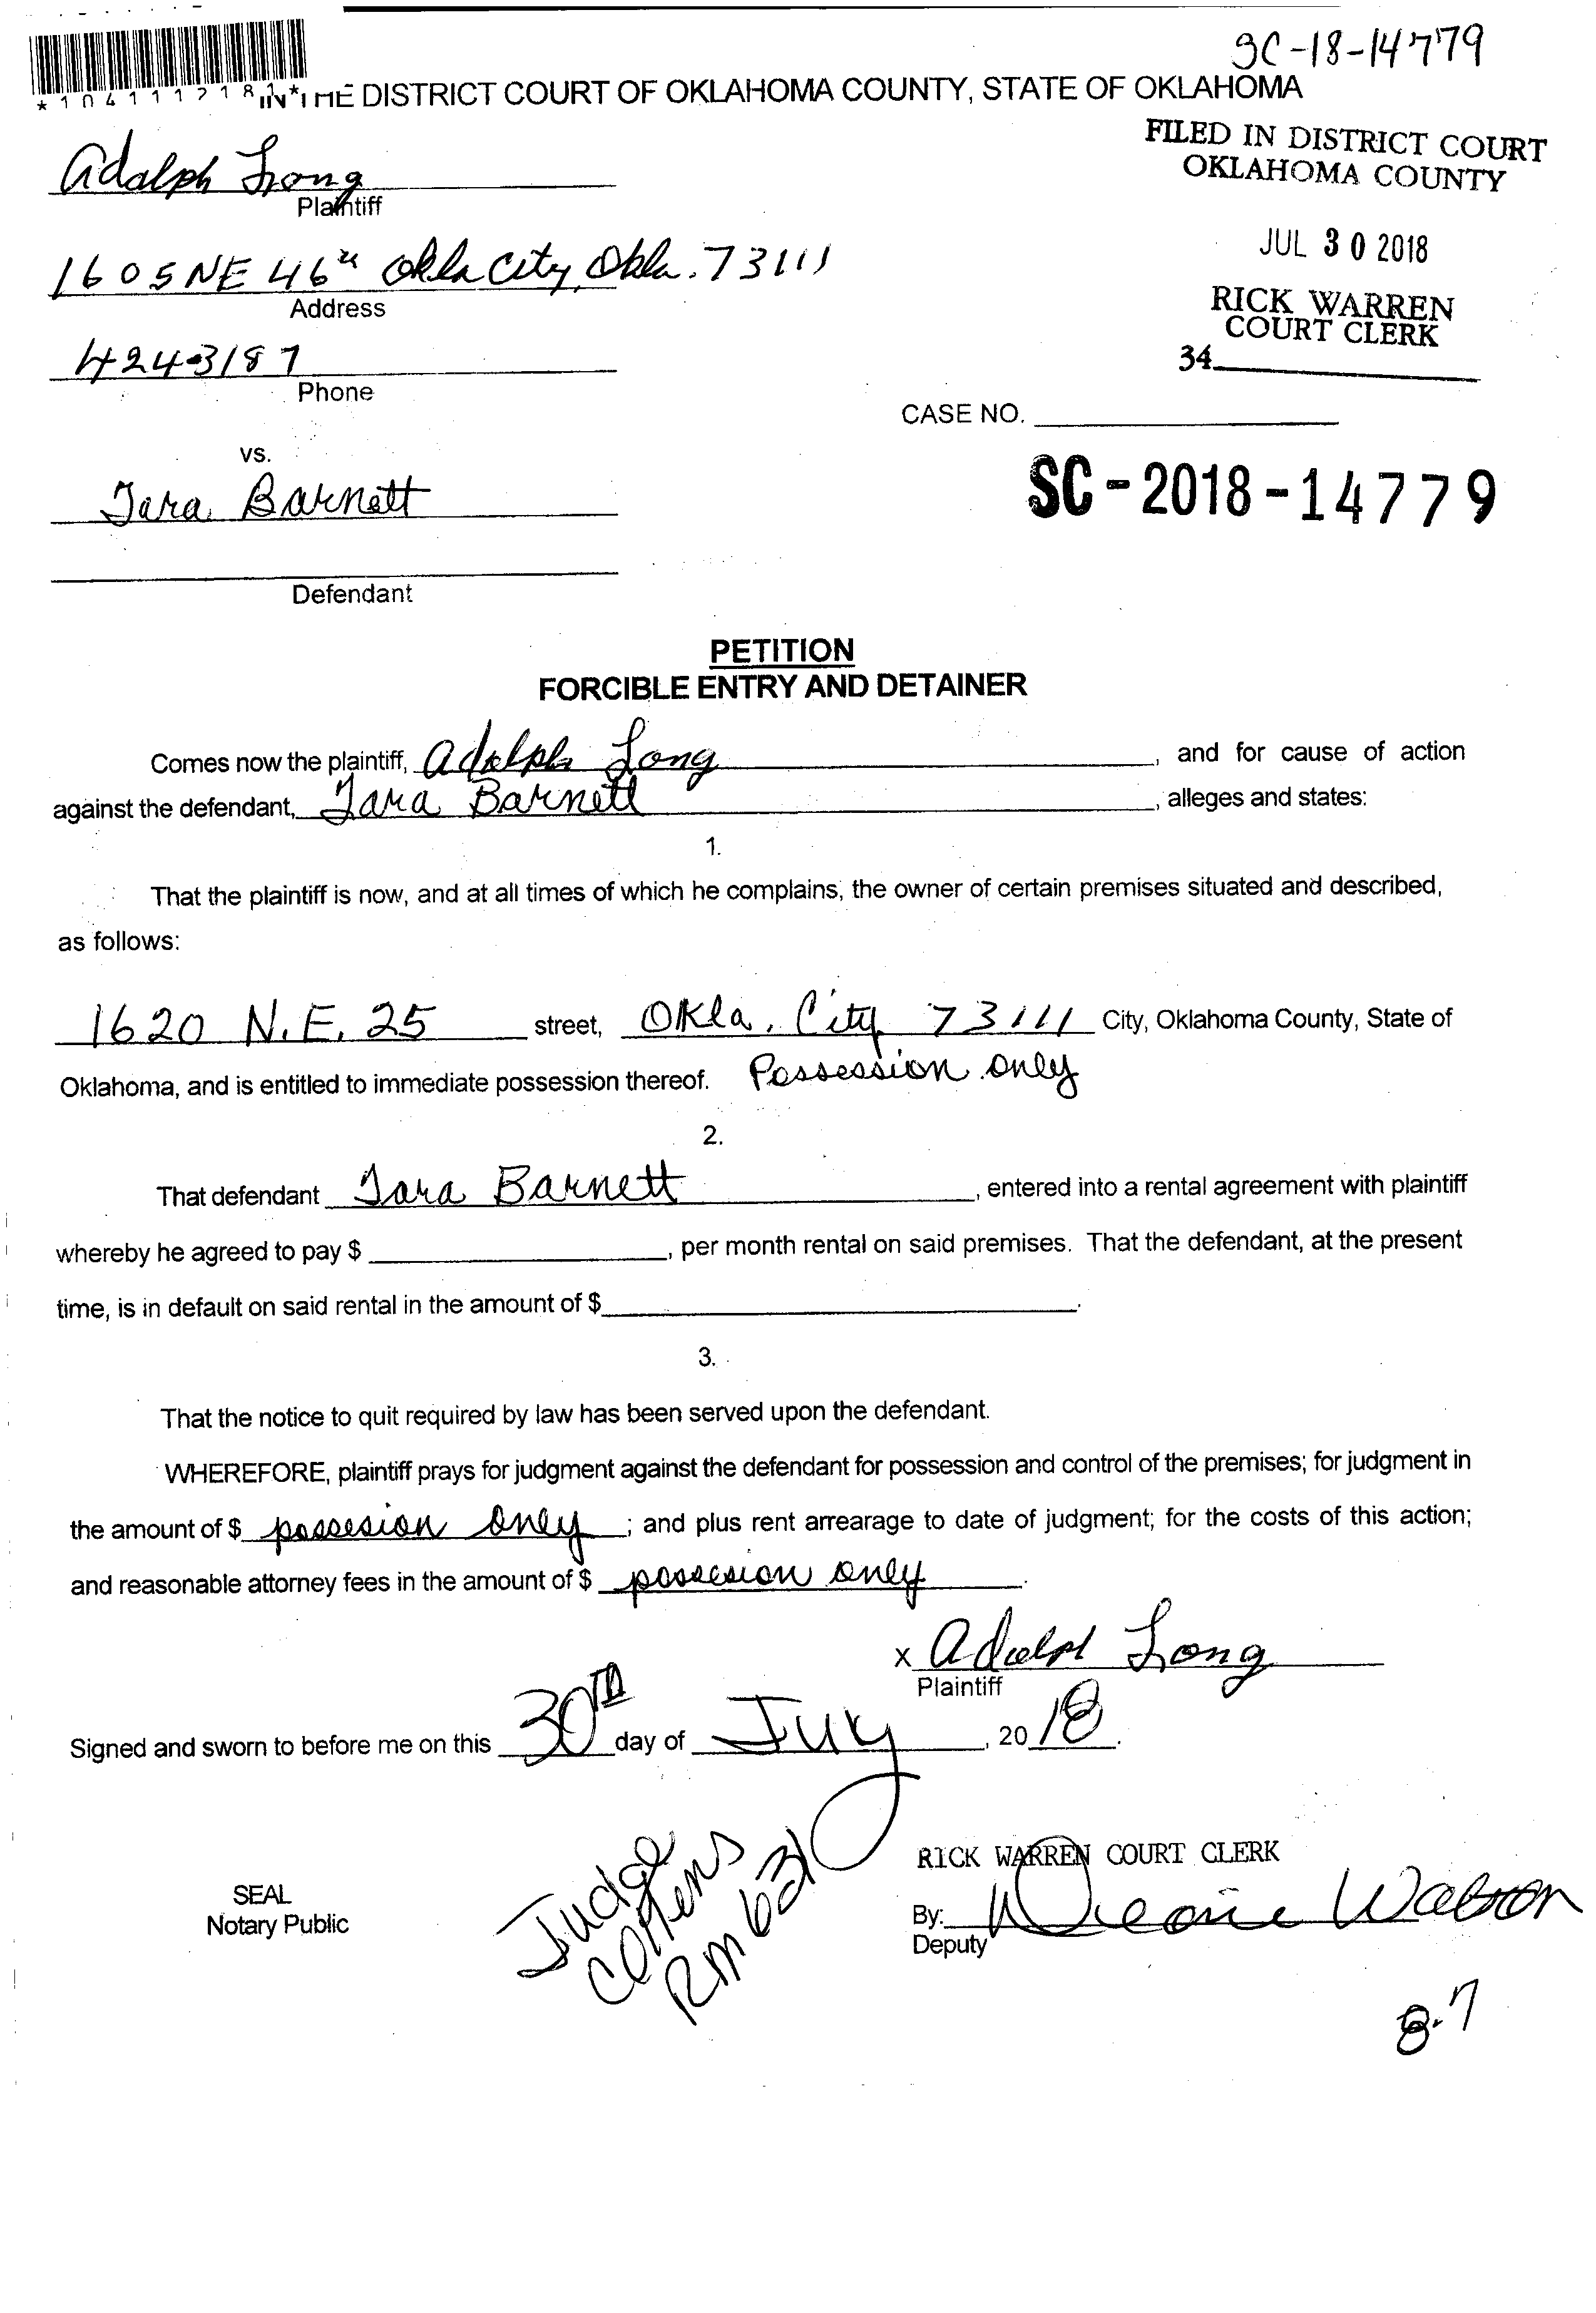 SC-18-14779
*1041117181*
IN THE DISTRICT COURT OF OKLAHOMA COUNTY, STATE OF OKLAHOMA
FILED IN DISTRICT COURT
OKLAHOMA COUNTY
Adalph Long
Plaintiff
JUL 30 2018
1605 NE 46th Okla City, Okla. 73111
Address
RICK WARREN
COURT CLERK
34
424-3187
Phone
CASE NO.
vs.
SC-2018-14779
Tara Barnett
Defendant
PETITION
FORCIBLE ENTRY AND DETAINER
Comes now the plaintiff, Adalph Long, and for cause of action
against the defendant, Tara Barnett, alleges and states:
1.
That the plaintiff is now, and at all times of which he complains, the owner of certain premises situated and described,
as follows:
1620 N.E. 25 street, Okla. City 73111 City, Oklahoma County, State of
Oklahoma, and is entitled to immediate possession thereof. Possession only
2.
That defendant Tara Barnett, entered into a rental agreement with plaintiff
whereby he agreed to pay $, per month rental on said premises. That the defendant, at the present
time, is in default on said rental in the amount of $.
3.
That the notice to quit required by law has been served upon the defendant.
WHEREFORE, plaintiff prays for judgment against the defendant for possession and control of the premises; for judgment in
the amount of $ possesion only; and plus rent arrearage to date of judgment; for the costs of this action;
and reasonable attorney fees in the amount of $ possesion only.
x Adalph Long
Plaintiff
Signed and sworn to before me on this 30TH day of July, 2018.
Judge
Collens
Rm 631
RICK WARREN COURT CLERK
SEAL
Notary Public
By: Watson
Deputy
8-7